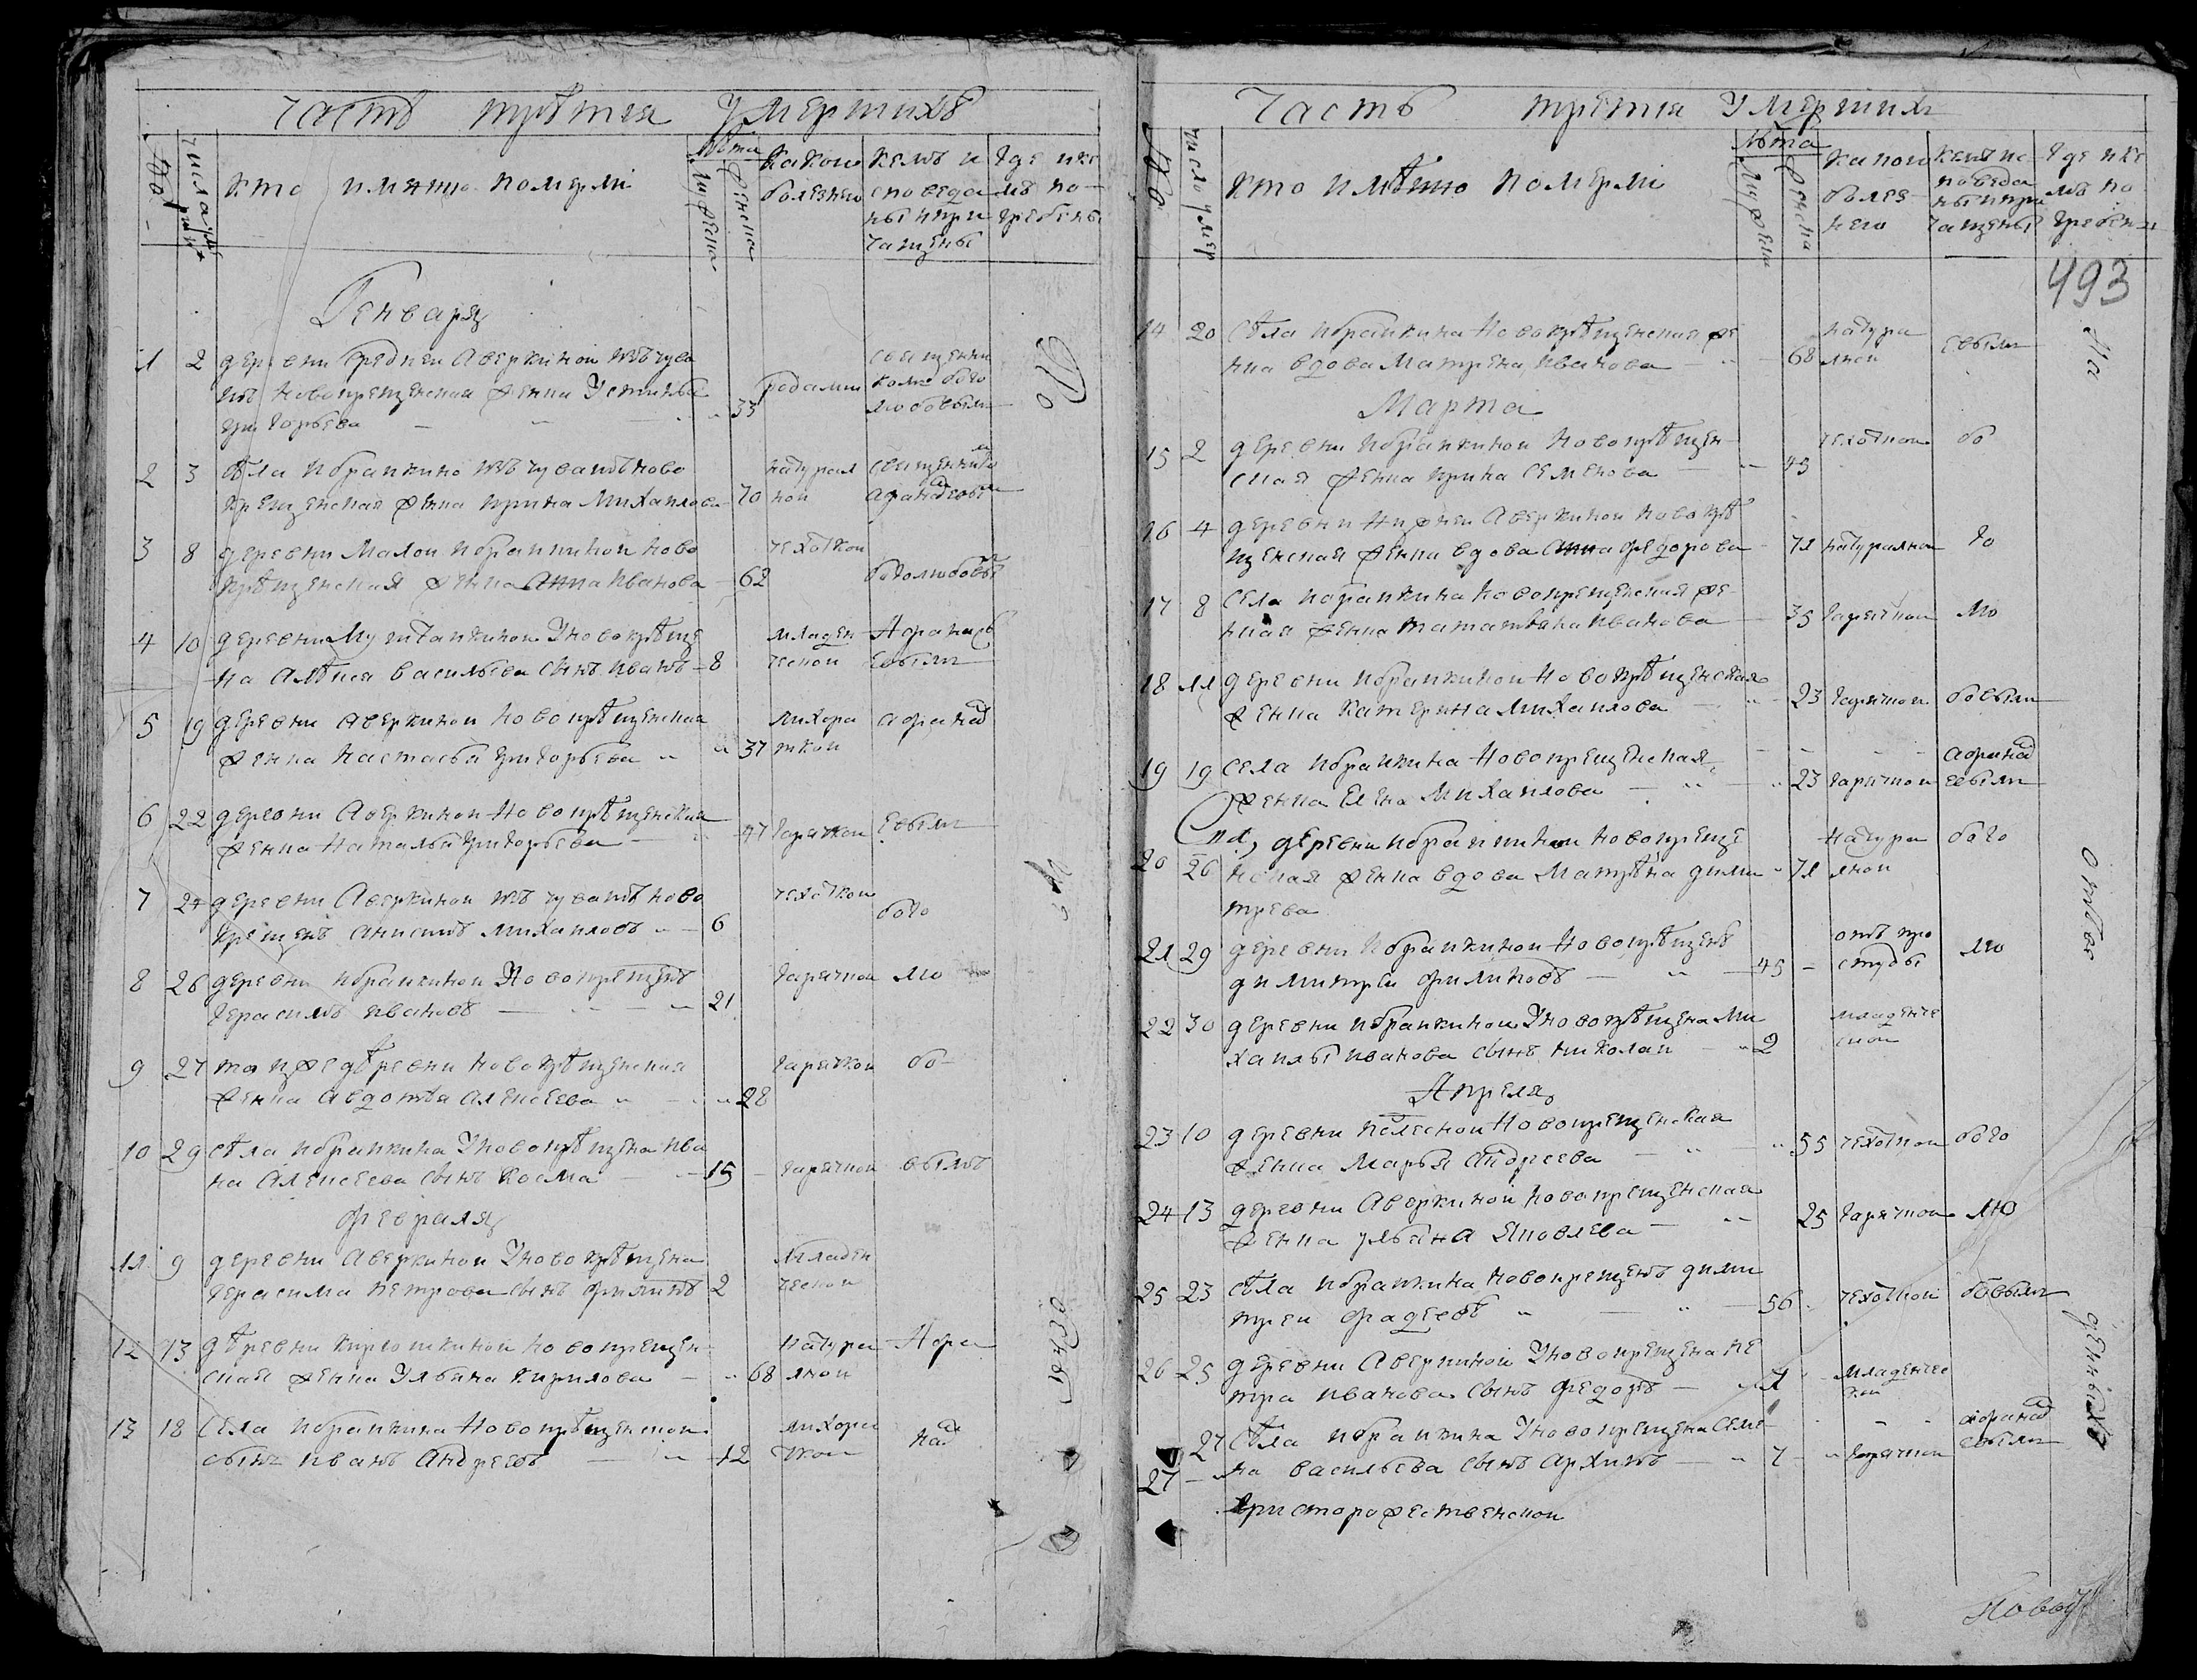 Часть третия Умершихъ
Кто имянно померлі
Лѣта
Мужеска
Женска
Какою болезнию
Кемъ исповеданы и причащены
Где и кемъ погребены
Генваря
1 2 деревни Средней Аверкиной изъ чува
шъ новокрещенская женка Устинья
Григорьева 33 родами Священникомъ бого любовымъ
2 3 Села Ибраикина изъ чувашъ ново
крещенская женка Ирина Михаилова 70 натуралной
3 8 деревни Малой Ибраикиной ново
крѣщенская женка Анна Иванова 62 чехоткой боголюбовы
4 10 деревни Новокрѣще
на Алѣѯея Васильева сынъ Иванъ 8 младенческой Афанасьевымъ
5 19 деревни Аверкиной новокрѣщенская
женка Настасья Григорьева 37 лихораткой афанас
6 22 деревни Аверкиной новокрѣщенская
женка Наталья Григорьева 47 горячкой евымъ
7 24 деревни Аверкиной изъ чувашъ ново
крещенъ Анисимъ Михаиловъ 6 чехоткой бого
8 26 деревни Ибраикиной Новокрещенъ
Герасимъ Ивановъ 21 горячкой лю
9 27 той же деревни новокрѣщенская
женка Авдотья Алексеева 28 горячкой бо
10 29 Сѣла Ибраикина У новокрѣщена Ива
на Алексеева сынъ Косма 15 горячкой вымъ
Февраля
11 9 деревни Аверкиной У новокрѣщена
Герасима Петрова сынъ Филипъ 2 младенческой
12 13 дѣревни новокрещен
ская женка Ульяна Кирилова 68 натуралной Афа
13 18 Села Ибраикина Новокрѣщенской
сынъ Иванъ Андреевъ 12 лихораткой нас
Часть третия Умершихъ
Число умер
Кто имѣнно померлі
Лѣта
Мужеска
Женска
Какою болезнею
Кемъ исповеданы и причащены
Где и кемъ погребены
493
14 20 Сѣла Ибраикина Новокрѣщенская же
нка вдова Матрена Иванова 68 натуралной евымъ
Марта
15 2 деревни Ибраикиной Новокрѣщен
ская женка Ирина Семенова 45 чехоткою бо
16 4 деревни Нижней Аверкиной новокрѣ
щенская женка вдова Анна Федорова 71 натуралною го
17 8 Села Ибраикина новокрещенская же
нка Иванова 35 горячкой лю
18 11 деревни Ибраикиной Новокрѣщенская
женка Катерина Михаилова 23 горячкой бовымъ
19 19 Села Ибраикина Новокрещенская
женка Елена Михаилова 23 горячкой афанасевымъ
20 26 деревни Ибраикиной новокреще
нская женка вдова Матрѣна дими
трева 71 натуралной бого
21 29 деревни Ибраикиной Новокрѣщенъ
димитрей Филиповъ 45 отъ простуды лю
22 30 деревни Ибраикиной У новокрѣщена Ми
хаилы Иванова сынъ Николай 2 младенческой
Апреля
23 10 деревни Новокрещенская
женка Марья Андреева 55 чехоткой бого
24 13 деревни Аверкиной новокрещенская
женка Ульяна Яковлева 25 горячкой лю
25 23 Сѣла Ибраикина новокрещенъ дими
трей Фадеевъ 56 чехоткой бовымъ
26 25 деревни Аверкиной У новокрещена Пе
тра Иванова сынъ Федоръ 1 младенческой
27 27 Сѣла Ибраикина У новокрещена Семе
на Васильева сынъ Архипъ 7 горячкой афанасевымъ
Христорожественской
На отве денныхъ